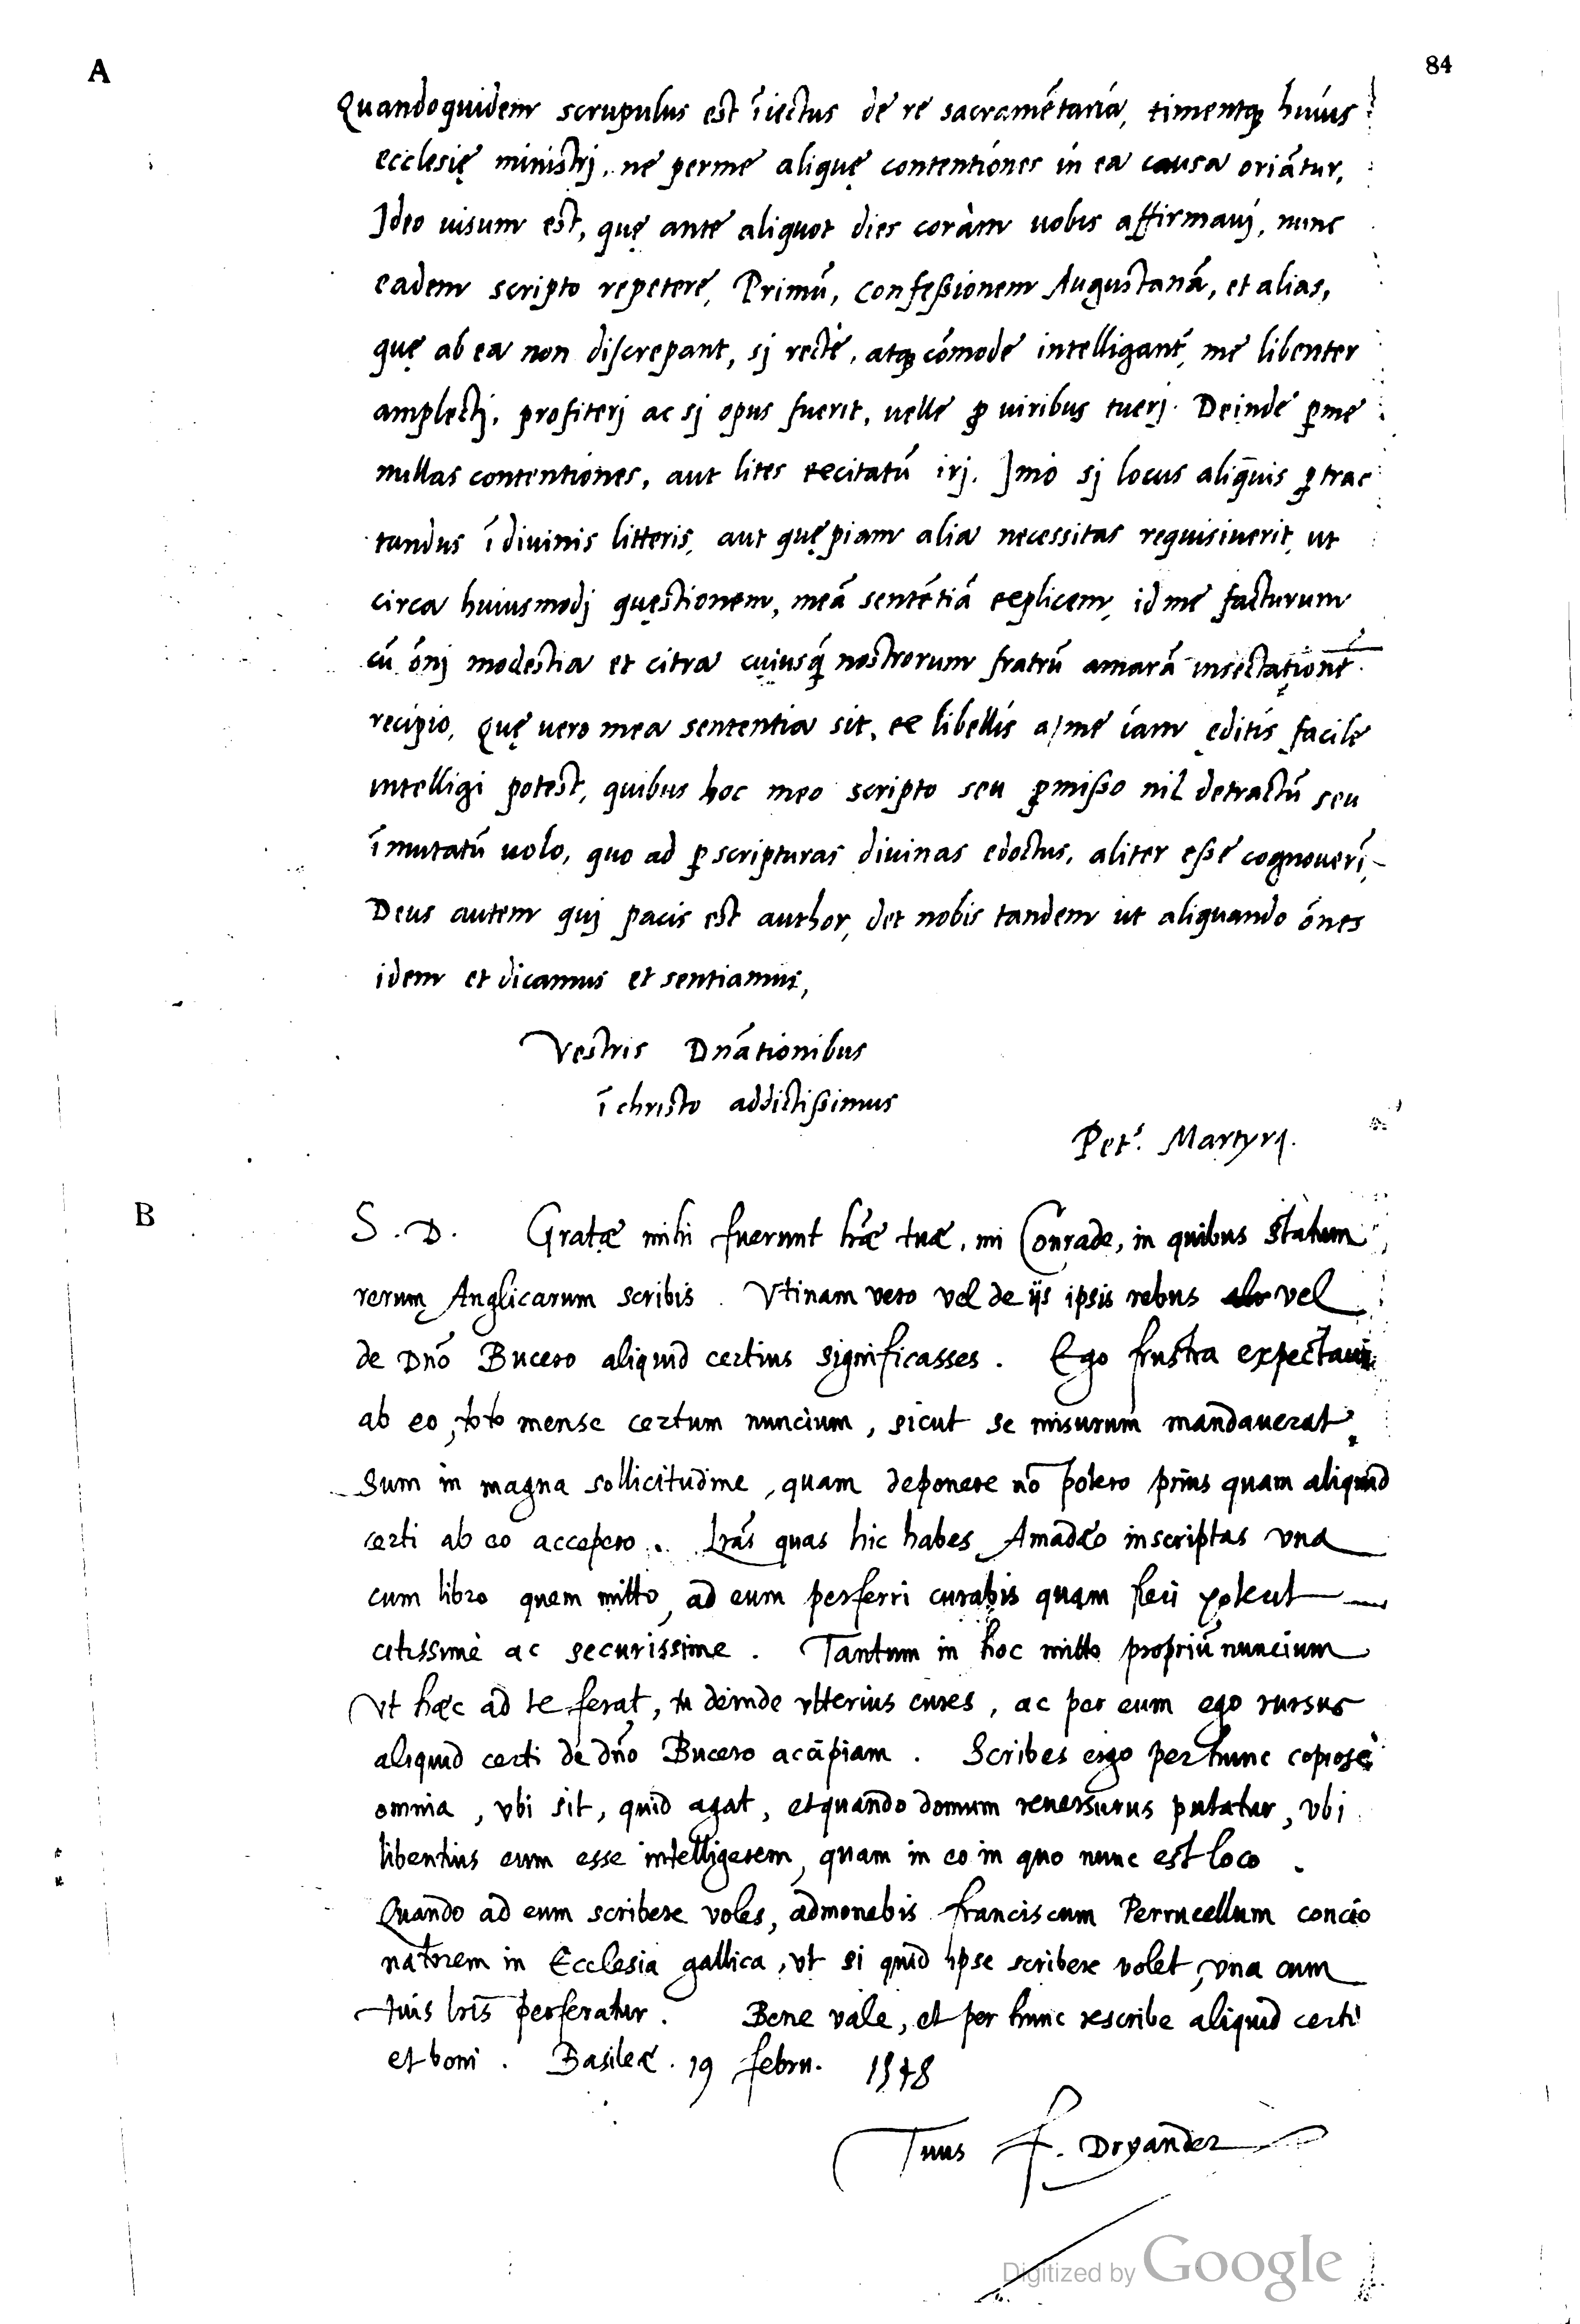 A
84
Quandoquidem scrupulus est īiectus de re sacramētaria, timentqꝫ huius
ecclesię ministrj, ne perme aliquę contentiones in ea causa oriātur,
Ideo uisum est, quę ante aliquot dies coràm uobis affirmauj, nunc
eadem scripto repetere, Primū, confeßionem Augustanā, et alias,
quę ab ea non discrepant, sj rectè, atqꝫ cōmode intelligant᷑, me libenter
amplectj, profiterj ac sj opus fuerit, uelle ꝓ uiribus tuerj. Deinde ꝑme
nullas contentiones, aut lites excitatū irj. Imo sj locus aliquis ꝑtrac
tandus ī diuinis litteris, aut quępiam alia necessitas requisiuerit, ut
circa huiusmodj quęstionem, meā sentētiā explicem, id me facturum
cū ōnj modestia et citra cuiusqꝫ nostrorum fratrū amarā insectationē
recipio, Quę uero mea sententia sit, ex libellis a/me iam ęditis facile
intelligi potest, quibus hoc meo scripto seu ꝓmißo nil detractū seu
īmutatū uolo, quo ad ꝑ scripturas diuinas edoctus, aliter eße cognouerī,
Deus autem quj pacis est author, det nobis tandem ut aliquando ōnes
idem et dicamus et sentiamus,
Vestris Dnātionibus
ī christo addictißimus
Petˢ. Martyr.
B
S. D. Gratæ mihi fuerunt lr̄æ tuæ, mi Conrade, in quibus statum
rerum Anglicarum scribis. Vtinam vero vel de ijs ipsis rebus vel
de Dnō Bucero aliquid certius significasses. Ego frustra expectaui
ab eo, toto mense certum nuncium, sicut se misurum mandauerat.
Sum in magna sollicitudine, quam deponere nō potero prius quam aliquid
certi ab eo accepero. Lrās quas hic habes Amadæo inscriptas vna
cum libro quem mitto, ad eum perferri curabis quam fieri poterit
citissime ac securissime. Tantum in hoc mitto propriū nuncium
vt hæc ad te ferat, tu deinde vlterius cures, ac per eum ego rursus
aliquid certi de dnō Bucero accipiam. Scribes ergo per hunc copiose
omnia, vbi sit, quid agat, et quando domum reuersurus putatur, vbi
libentius eum esse intelligerem, quam in eo in quo nunc est loco.
Quando ad eum scribere voles, admonebis franciscum Perrucellum concio
natorem in Ecclesia gallica, vt si quid ipse scribere volet, vna cum
tuis lrīs perferatur. Bene vale, et per hunc rescribe aliquid certi
et boni. Basileæ. 19 febru. 1548
Tuus F. Dryander
Digitized by Google